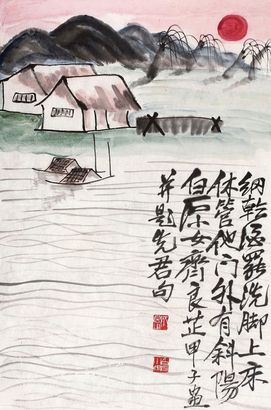 網乾酒罷洗脚上床
休管他門外有斜陽
白石女齊良芷甲子畫
并題先君句